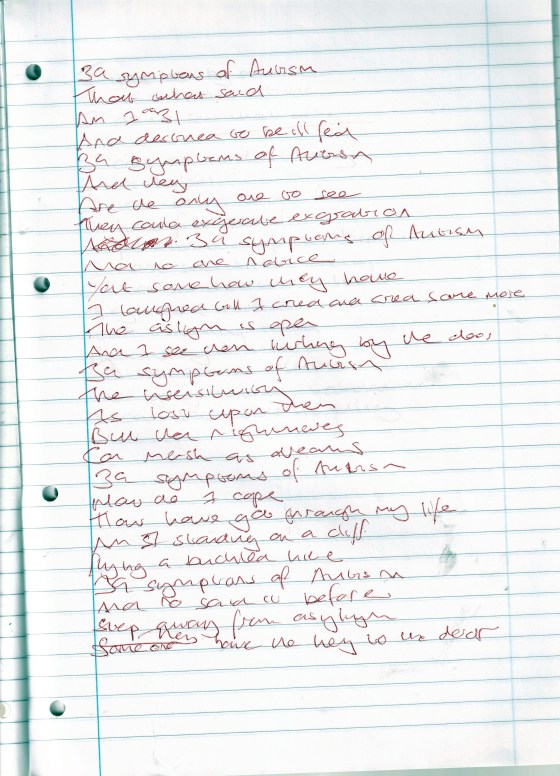 39 symptoms of Autism
That what said
Am I 31
And destined to be ill feid
39 symptoms of Autism
And they
Are the only one to see
They could exgerate exgration
39 symptoms of Autism
And no one notice
Yet somehow they have
I laughed till I cried and cried some more
The asylum is open
And I see them lurking by the door
39 symptoms of Autism
The insensitivity
Is lost upon them
But the nightmares
Can mersh as dreams
39 symptoms of Autism
How do I cope
How have got through my life
Am I standing on a cliff
flying a buckled kite
39 symptoms of Autism
And to said it before
step away from asylym
Someone have the key to the door